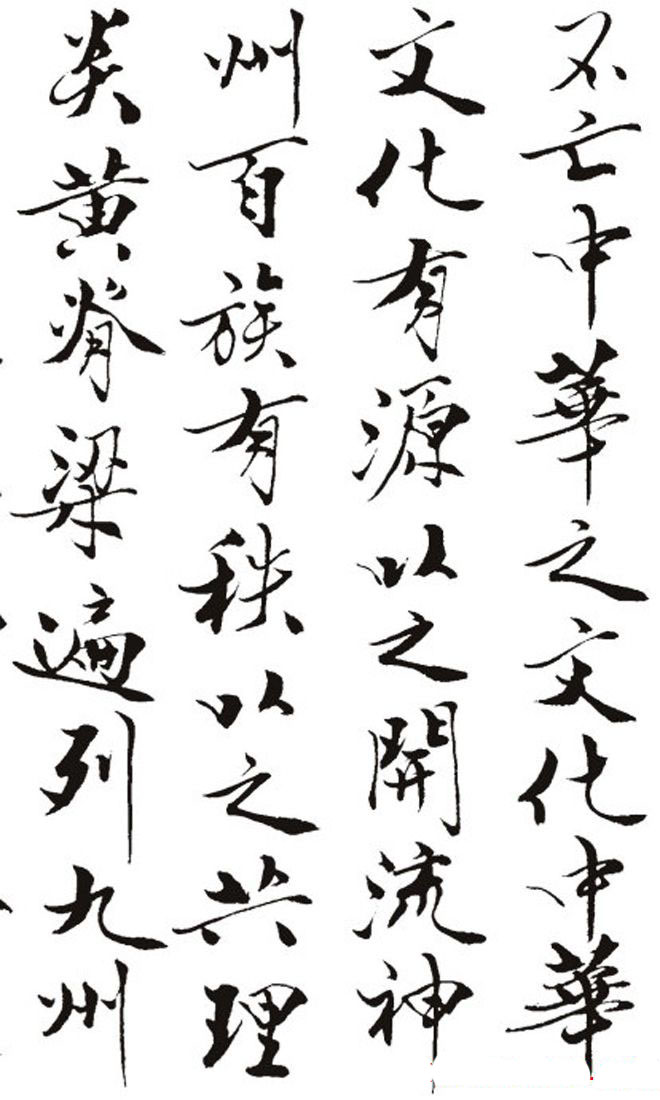 不亡中華之文化中華
文化有源以之開流神
州百族有秩以之共理
炎黄脊梁遍列九州